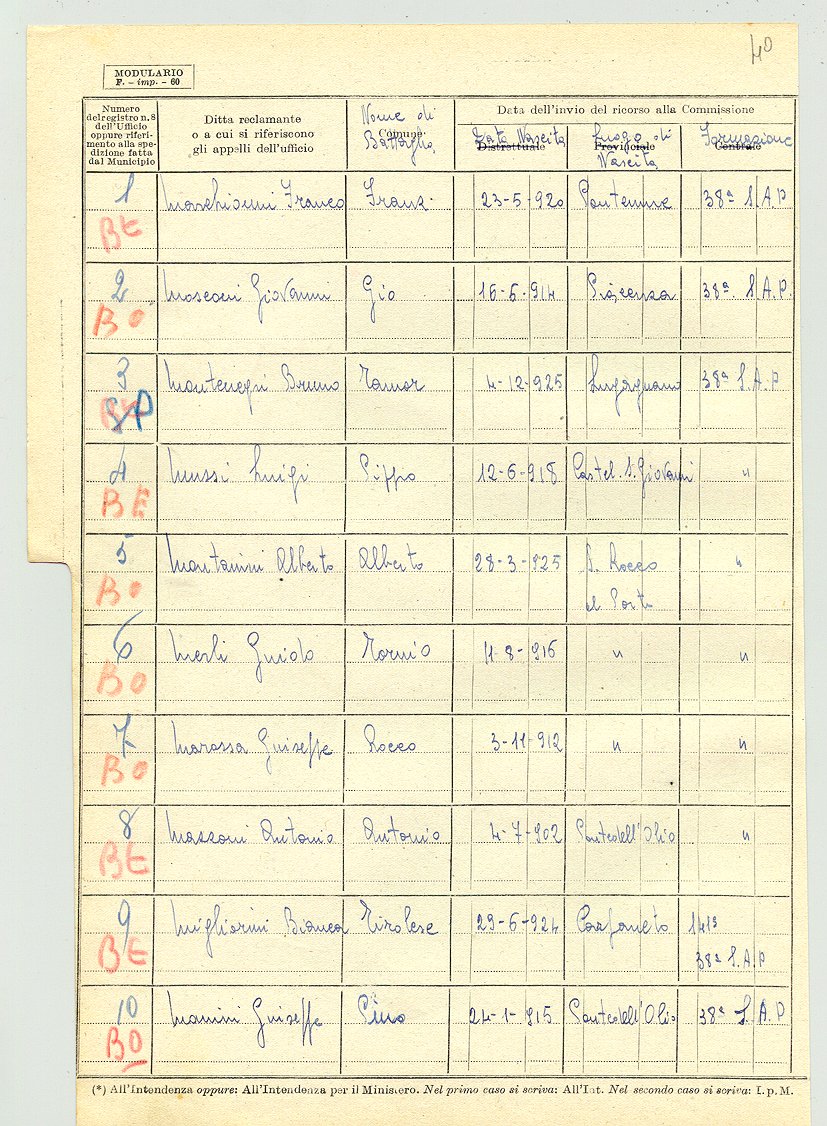 40
MODULARIO
F. - imp. - 60
Numero
del registro n. 8
dell'Ufficio
oppure riferi-
mento alla spe-
dizione fatta
dal Municipio
Ditta reclamante
o a cui si riferiscono
gli appelli dell'ufficio
Nome di
Battaglia
Comune
Data dell'invio del ricorso alla Commissione
Data Nascita
Distrettuale
Luogo di
Provinciale
Nascita
Formazione
Centrale
1 Franco Franz 23-5-920 38ª S.A.P
BE
2 Mosconi Giovanni Gio 16-6-914 Piacenza 38ª S.A.P.
BO
3 Montenegri Bruno 4-12-925 Lugagnano 38ª S.A.P
SP
4 Mussi Luigi Pippo 12-6-918 Castel S. Giovanni "
BE
5 Montanini Alberto Alberto 28-3-925 S. Rocco "
BO al Porto
6 Merli Guido 11-8-916 " "
BO
7 Marossa Guiseppe Rocco 3-11-912 " "
BO
8 Mazzoni Antonio Antonio 4-7-902 Pontedell'Olio "
BE
9 Migliorini Bianca Tirolese 29-6-924 Carpaneto 141ª
BE 38ª S.A.P
10 Manini Guiseppe Pino 24-1-915 Pontedell'Olio 38ª S.A.P
BO
(*) All'Intendenza oppure: All'Intendenza per il Ministero. Nel primo caso si scriva: All'Int. Nel secondo caso si scriva: I. p. M.